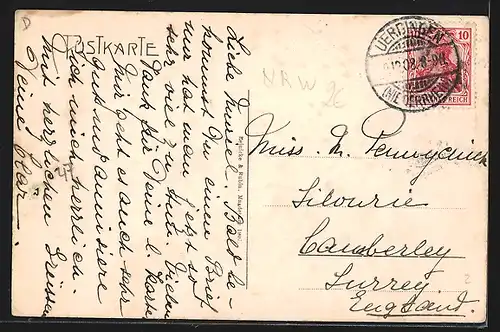 POSTKARTE
Liebe Muriel. Bald be-
kommst Du einen Brief
nur hat man jetzt so
sehr viel zu thun. Vielen
Dank für Deine l. Karte.
Mir geht es auch sehr
gut und amüsiere
mich herrlich.
Mit herzlichen Grüssen
Deine Clär.
UERDINGEN
(NIEDERRHEIN)
10
REICH
NRW
26
Miss. M. Pennycuick
Silourie
Camberley
Surrey
England.
2